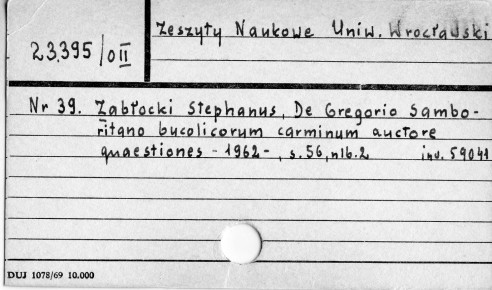 Zeszyty Naukowe Uniw. Wrocławski
23.395/OII
Nr 39. Zabłocki Stephanus, De Gregorio Sambo-
ritano bucolicorum carminum auctore
quaestiones - 1962 -, s. 56, nlb. 2 inv. 59041
DUJ 1078/69 10.000